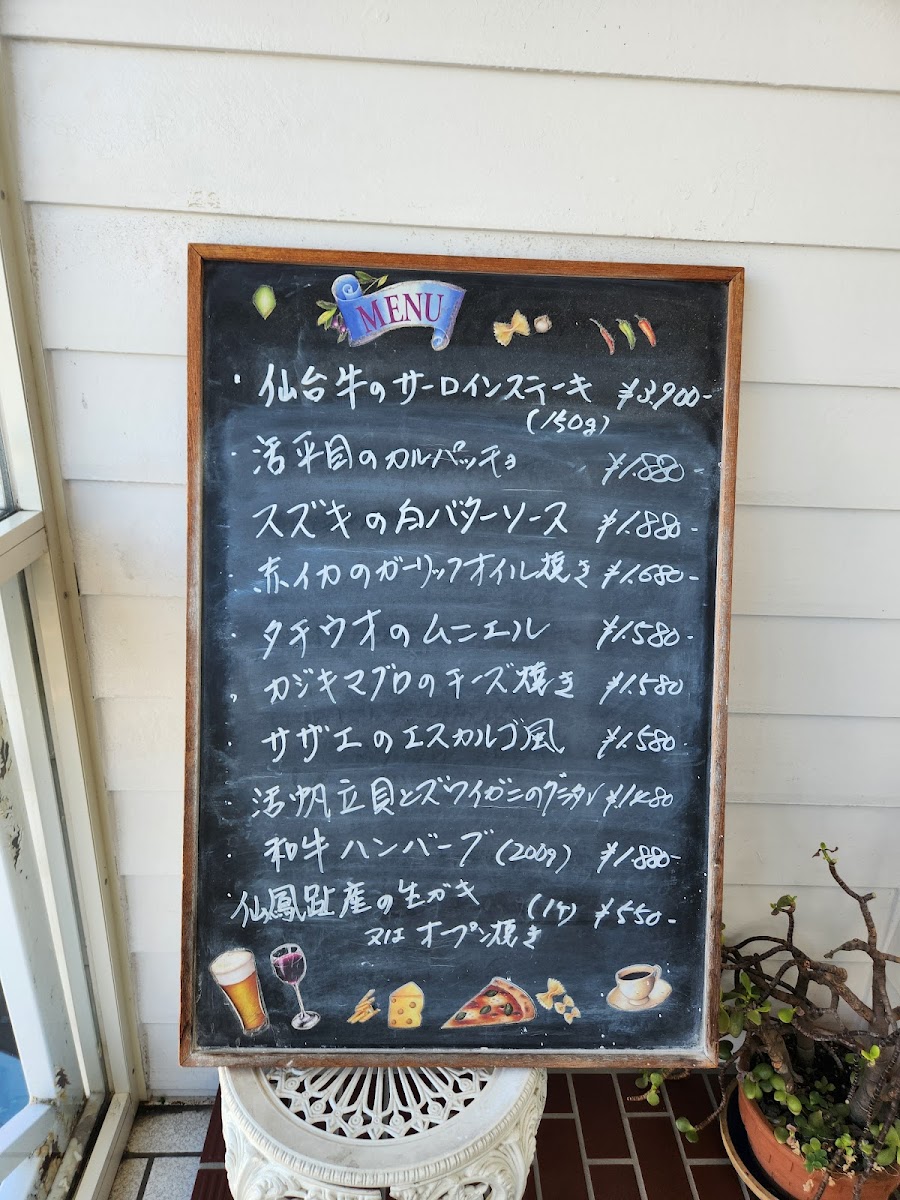 MENU
・仙台牛のサーロインステーキ ¥3,900-
(150g)
・活平目のカルパッチョ ¥1.880-
スズキの白バターソース ¥1.880-
・赤イカのガーリックオイル焼き ¥1.680-
・タチウオのムニエル ¥1.580-
・カジキマグロのチーズ焼き ¥1.580
・サザエのエスカルゴ風 ¥1.580
・活帆立貝とズワイガニのグラタン ¥1480
・和牛ハンバーグ (200g) ¥1.880-
・仙鳳趾産の生ガキ (1ケ) ¥550-
又は オーブン焼き